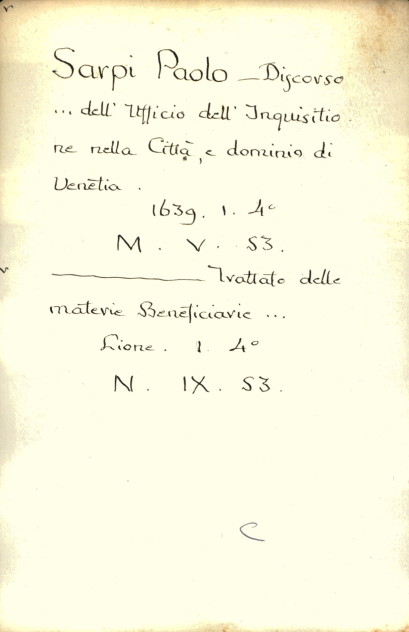 Sarpi Paolo — Discorso
... dell' Ufficio dell' Inquisitio
ne nella Città, e dominio di
Venetia.
1639. 1. 4°
M. V. 53.
——— Trattato delle
materie Beneficiarie ...
Lione. 1. 4°
N. IX. 53.
C